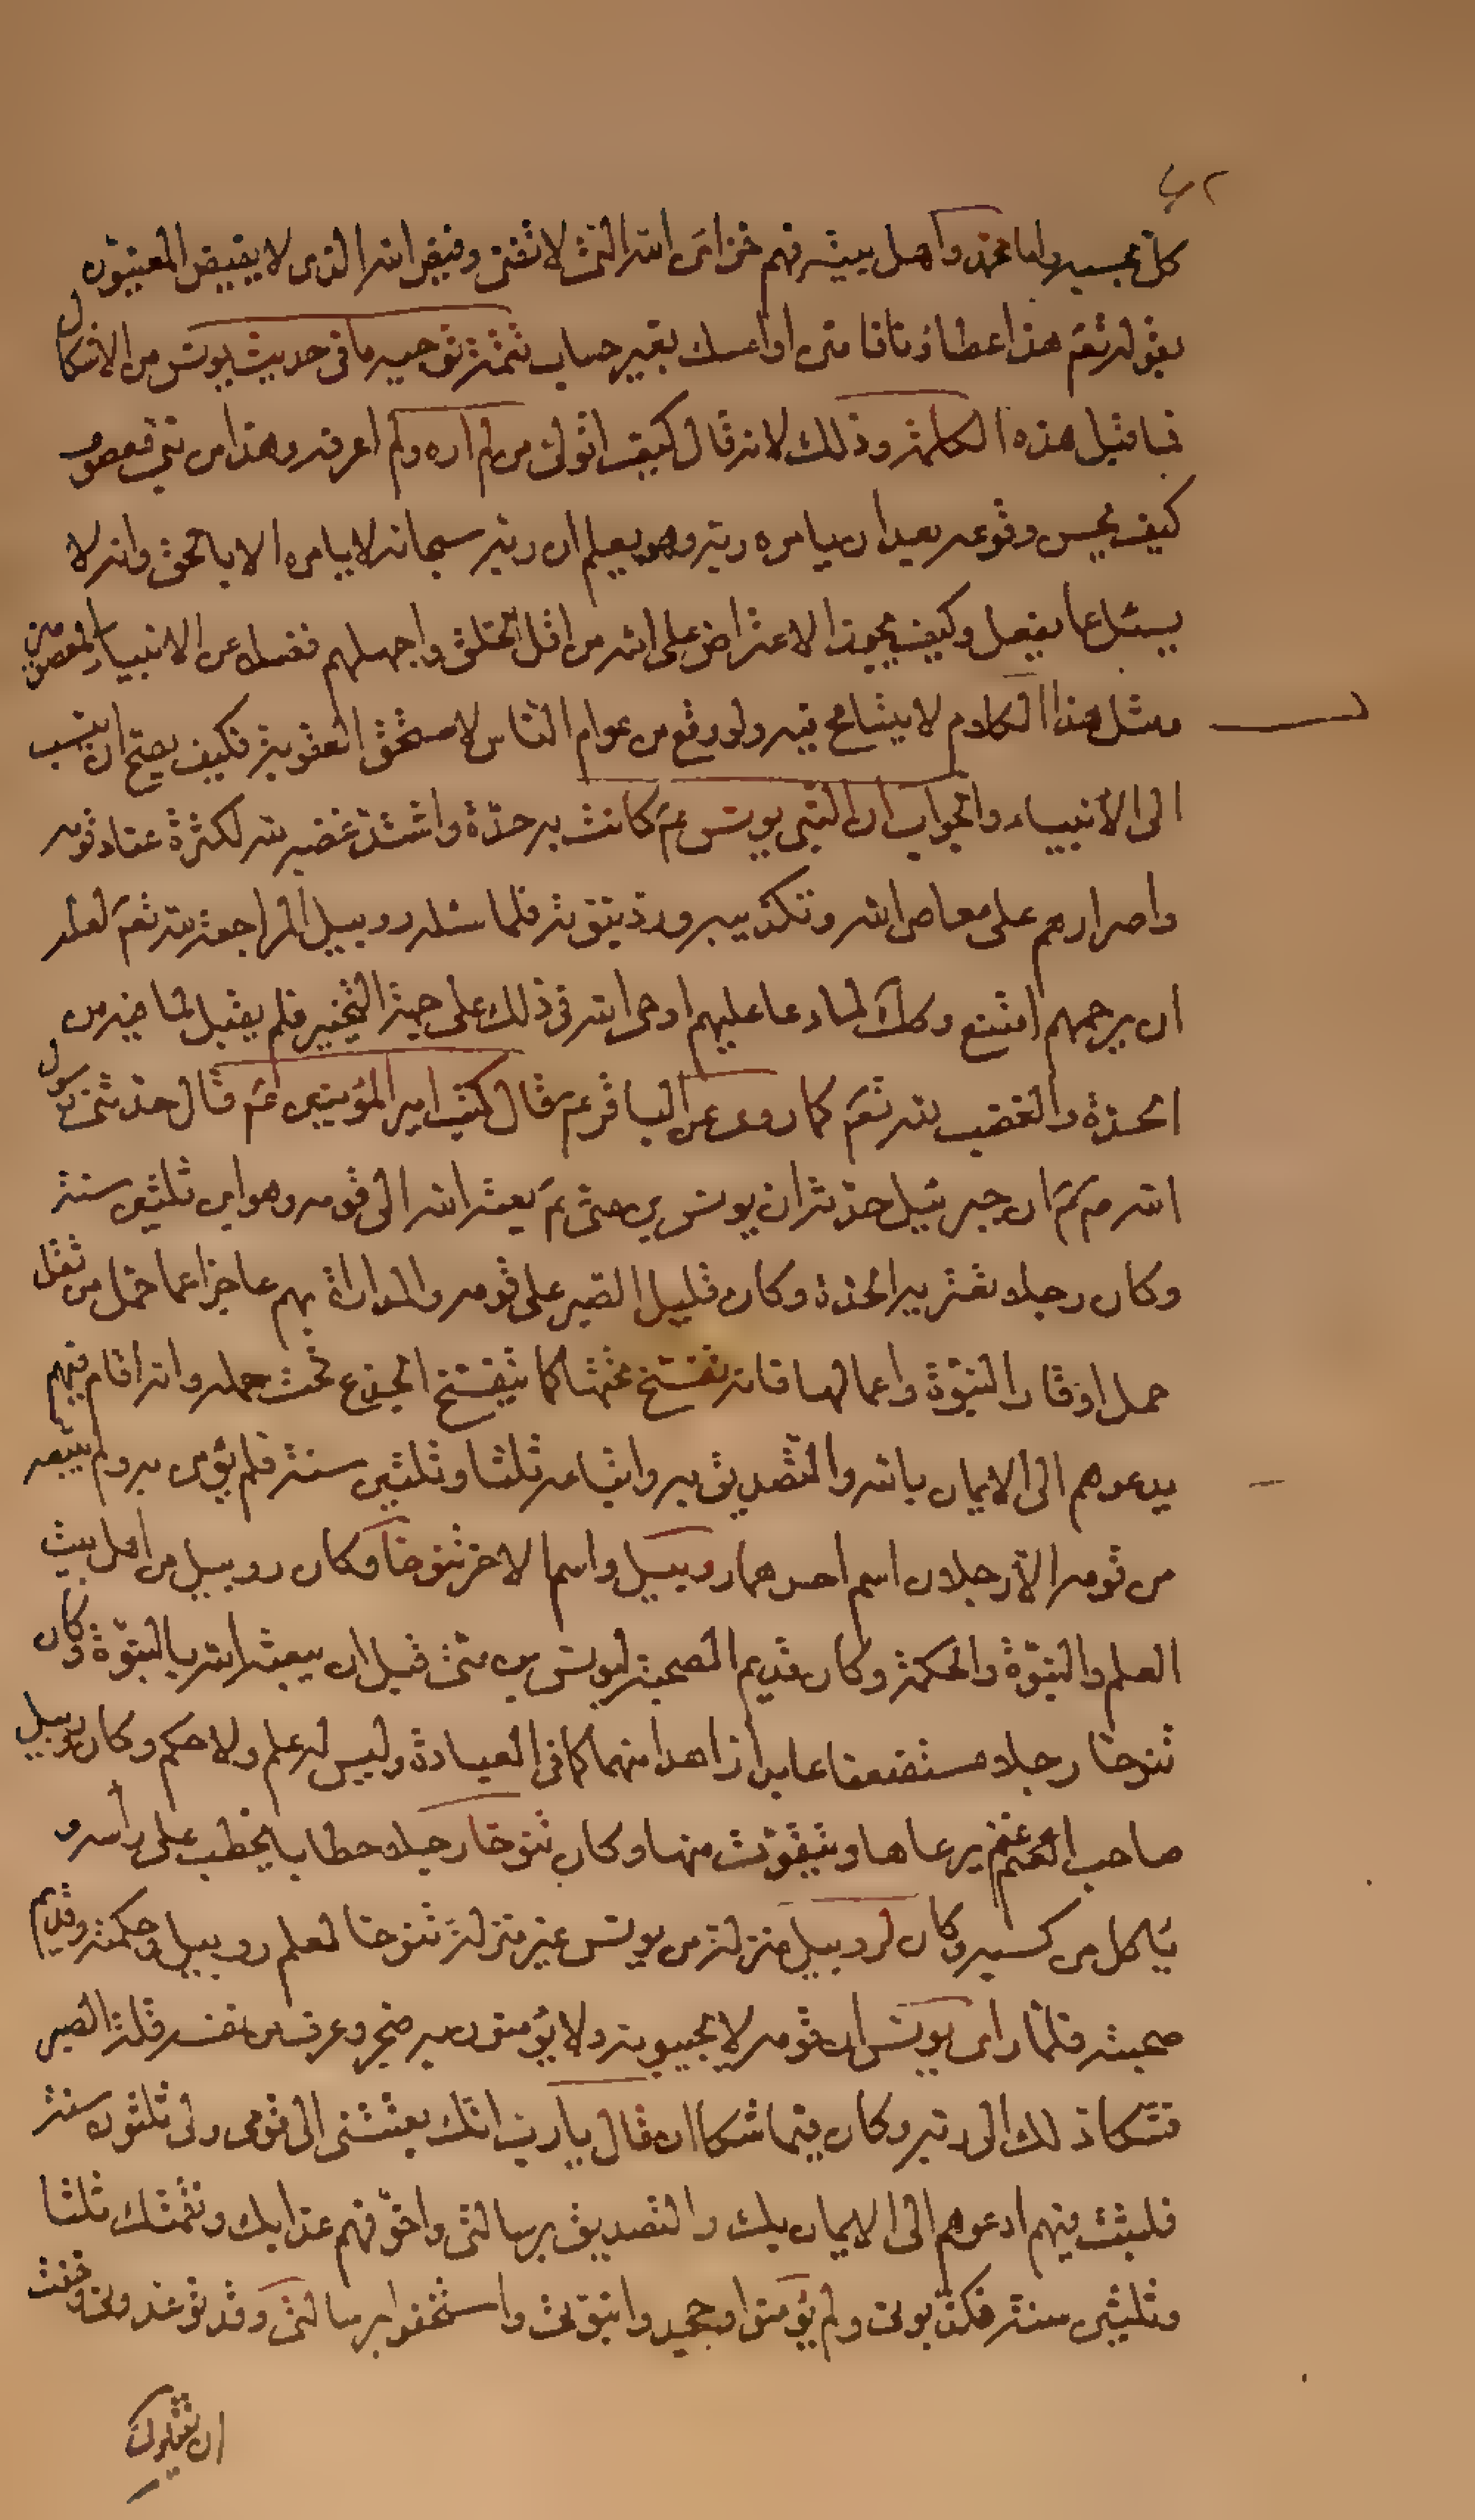 كل بحسبه واما محمد واهل بيته فهم خزاىن الله التى لا تفنى وفيض الله الذى لا يغيض المعينون
بقوله تعم هذا عطاؤنا فامنن او امسك بغير حساب تتمة توجيه ما فى حديث يونس من الاشكال
فيما قبل هذه الكلمة وذلك لانه قال كيف اتولى من لم اره ولم اعرفه وهذا من نبى معصوم
كيف يحسن وقوعه بعد ان يامره ربه وهو يعلم ان ربه سبحانه لا يامره الا بالحق وانه لا
يسئل عما يفعل وكيف يجوز الاعتراض على الله من اقل الخلق واجهلهم فضلا عن الانبياء المعصومين
مثل هذا الكلام لا يتسامح فيه ولو وقع من عوام الناس لاستحق العقوبة فكيف يصح ان ينسب
الى الأنبياء والجواب ان النبى يونس عم كانت به حدة واشتد غضبه لله لكثرة عناد قومه
واصرارهم على معاصى الله وتكذيبه ورد نبوته فلما سئله روبيل المراجعة لله تعم لعله
ان يرحمهم امتنع وكك لما دعا عليهم اوحى الله فى ذلك على جهة التخيير فلم يقبل لما فيه من
الحدة والغضب لله تعم كما روى عن الباقر عم قال كتب امير المؤمنين عم قال حدثنى رسول
الله صم ان جبرئيل حدثه ان يونس بن متى عم بعثه الله الى قومه وهو ابن ثلثين سنة
وكان رجلا تعتريه الحدة وكان قليل الصبر على قومه والمداراة بهم عاجزا عما حمل من ثقل
حمل اوقار النبوة واعمالها فانه تفسخ تحتها كما يتفسخ الجذع تحت حمله وانه اقام فيهم
يدعوهم الى الايمان بالله والتصديق به واتباعه ثلثا وثلثين سنة فلم يؤمن به ولم يتبعه
من قومه الا رجلان اسم احدهما روبيل واسم الاخر تنوخا وكان روبيل من اهل بيت
العلم والنبوة والحكمة وكان قديم الصحبة ليونس بن متى قبل ان يبعثه الله بالنبوة وكان
تنوخا رجلا مستضعفا عابدا زاهدا منهمكا فى العبادة وليس له علم ولا حكم وكان روبيل
صاحب الغنم غنم يرعاها ويتقوت منها وكان تنوخا رجلا حطابا يحطب على رأسه و
يأكل من كسبه وكان لروبيل منزلة من يونس غير منزلة تنوخا لعلم روبيل وحكمته وقديم
صحبته فلما راى يونس ان قومه لا يجيبونه ولا يؤمنون به ضجر وعرف من نفسه قلة الصبر
فشكا ذلك الى ربه وكان فيما شكا ان قال يا رب انك بعثتنى الى قومى ولى ثلثون سنة
فلبثت فيهم ادعوهم الى الايمان بك والتصديق برسالتى واخوفهم عذابك ونقمتك ثلثا
وثلثين سنة فكذبونى ولم يؤمنوا بى وجحدوا نبوتى واستخفوا برسالتى وقد توعدونى وخفت
ان يقتلونى